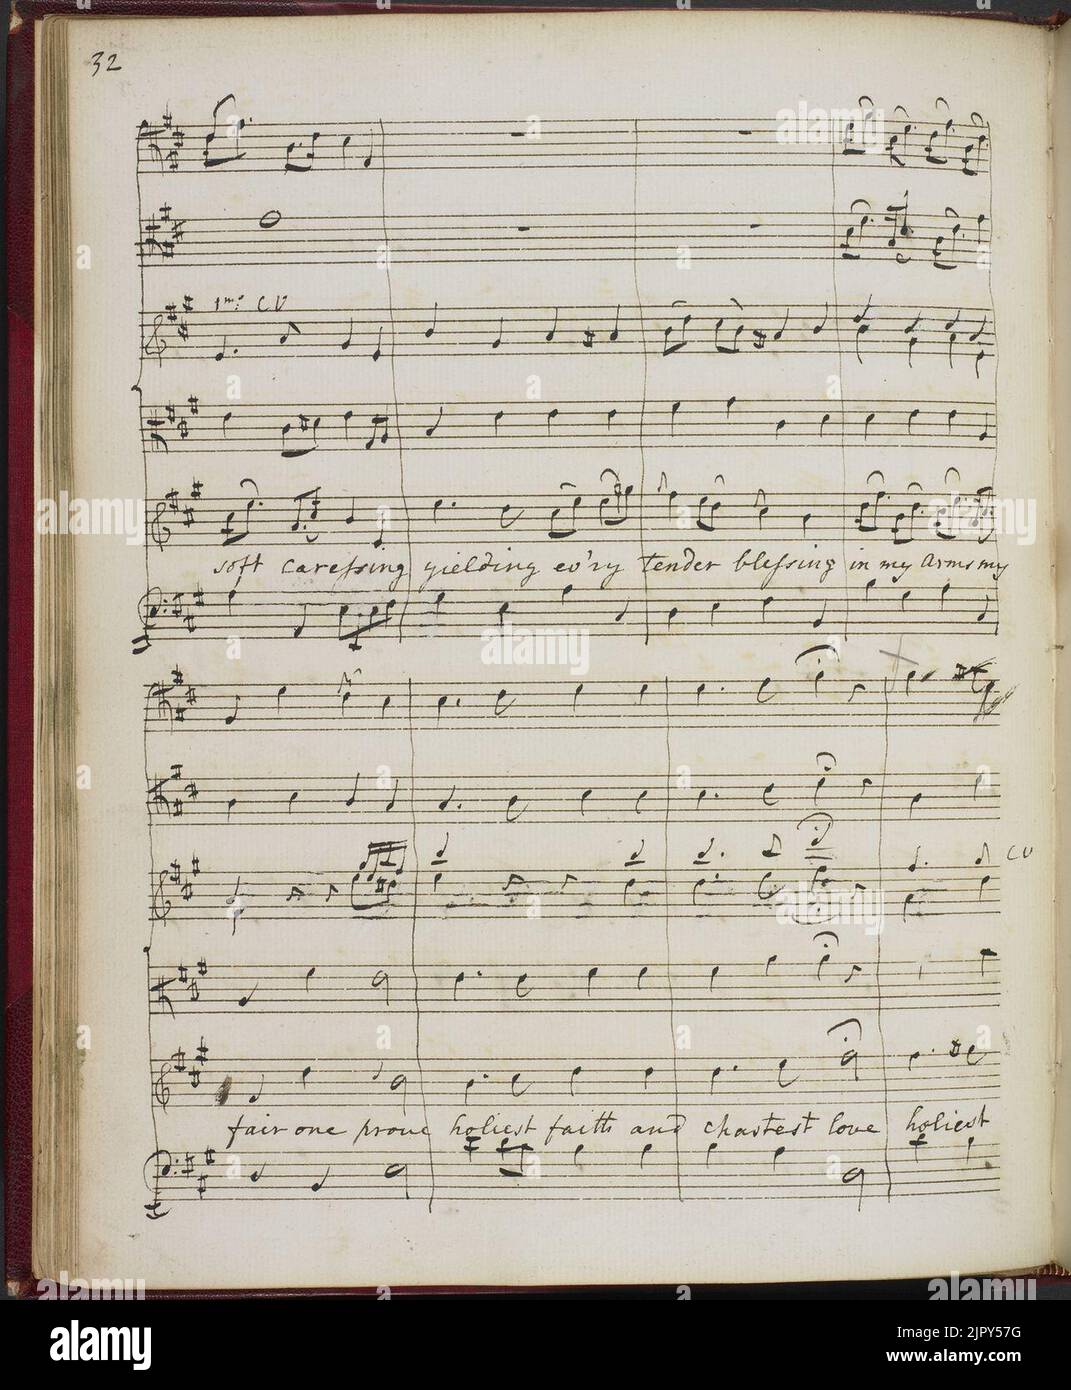 32
1mo CV
soft caressing yielding ev'ry tender blessing in my arms my
CV
fair one prove holiest faith and chastest love holiest
alamy
Image ID: 2JPY57G
www.alamy.com